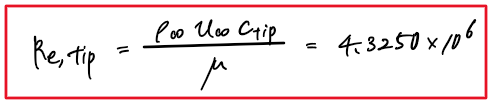 Re,tip = ρ∞ u∞ Ctip / μ = 4.3250 × 10⁶